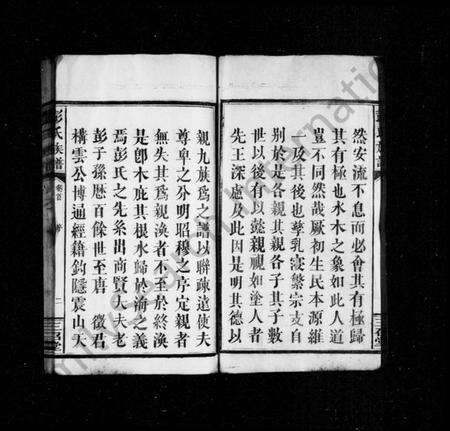 然安流不息而必會其有極歸
其有極也水木之象如此人道
豈不同然哉厥初生民本源維
一及其後也孳乳寖繁宗支自
別於是各親其親各子其子數
世以後有以懿親視如塗人者
先王深慮及此因是明其德以
親九族爲之譜以聯疎遠使夫
尊卑之分明昭穆之序定親者
無失其爲親渙者不至於終渙
是卽木庇其根水歸於瀹之義
焉彭氏之先系出商賢大夫老
彭子孫歷百餘世至唐 徵君
構雲公博通經籍鈎隱震山天
彭氏族譜
卷首
二